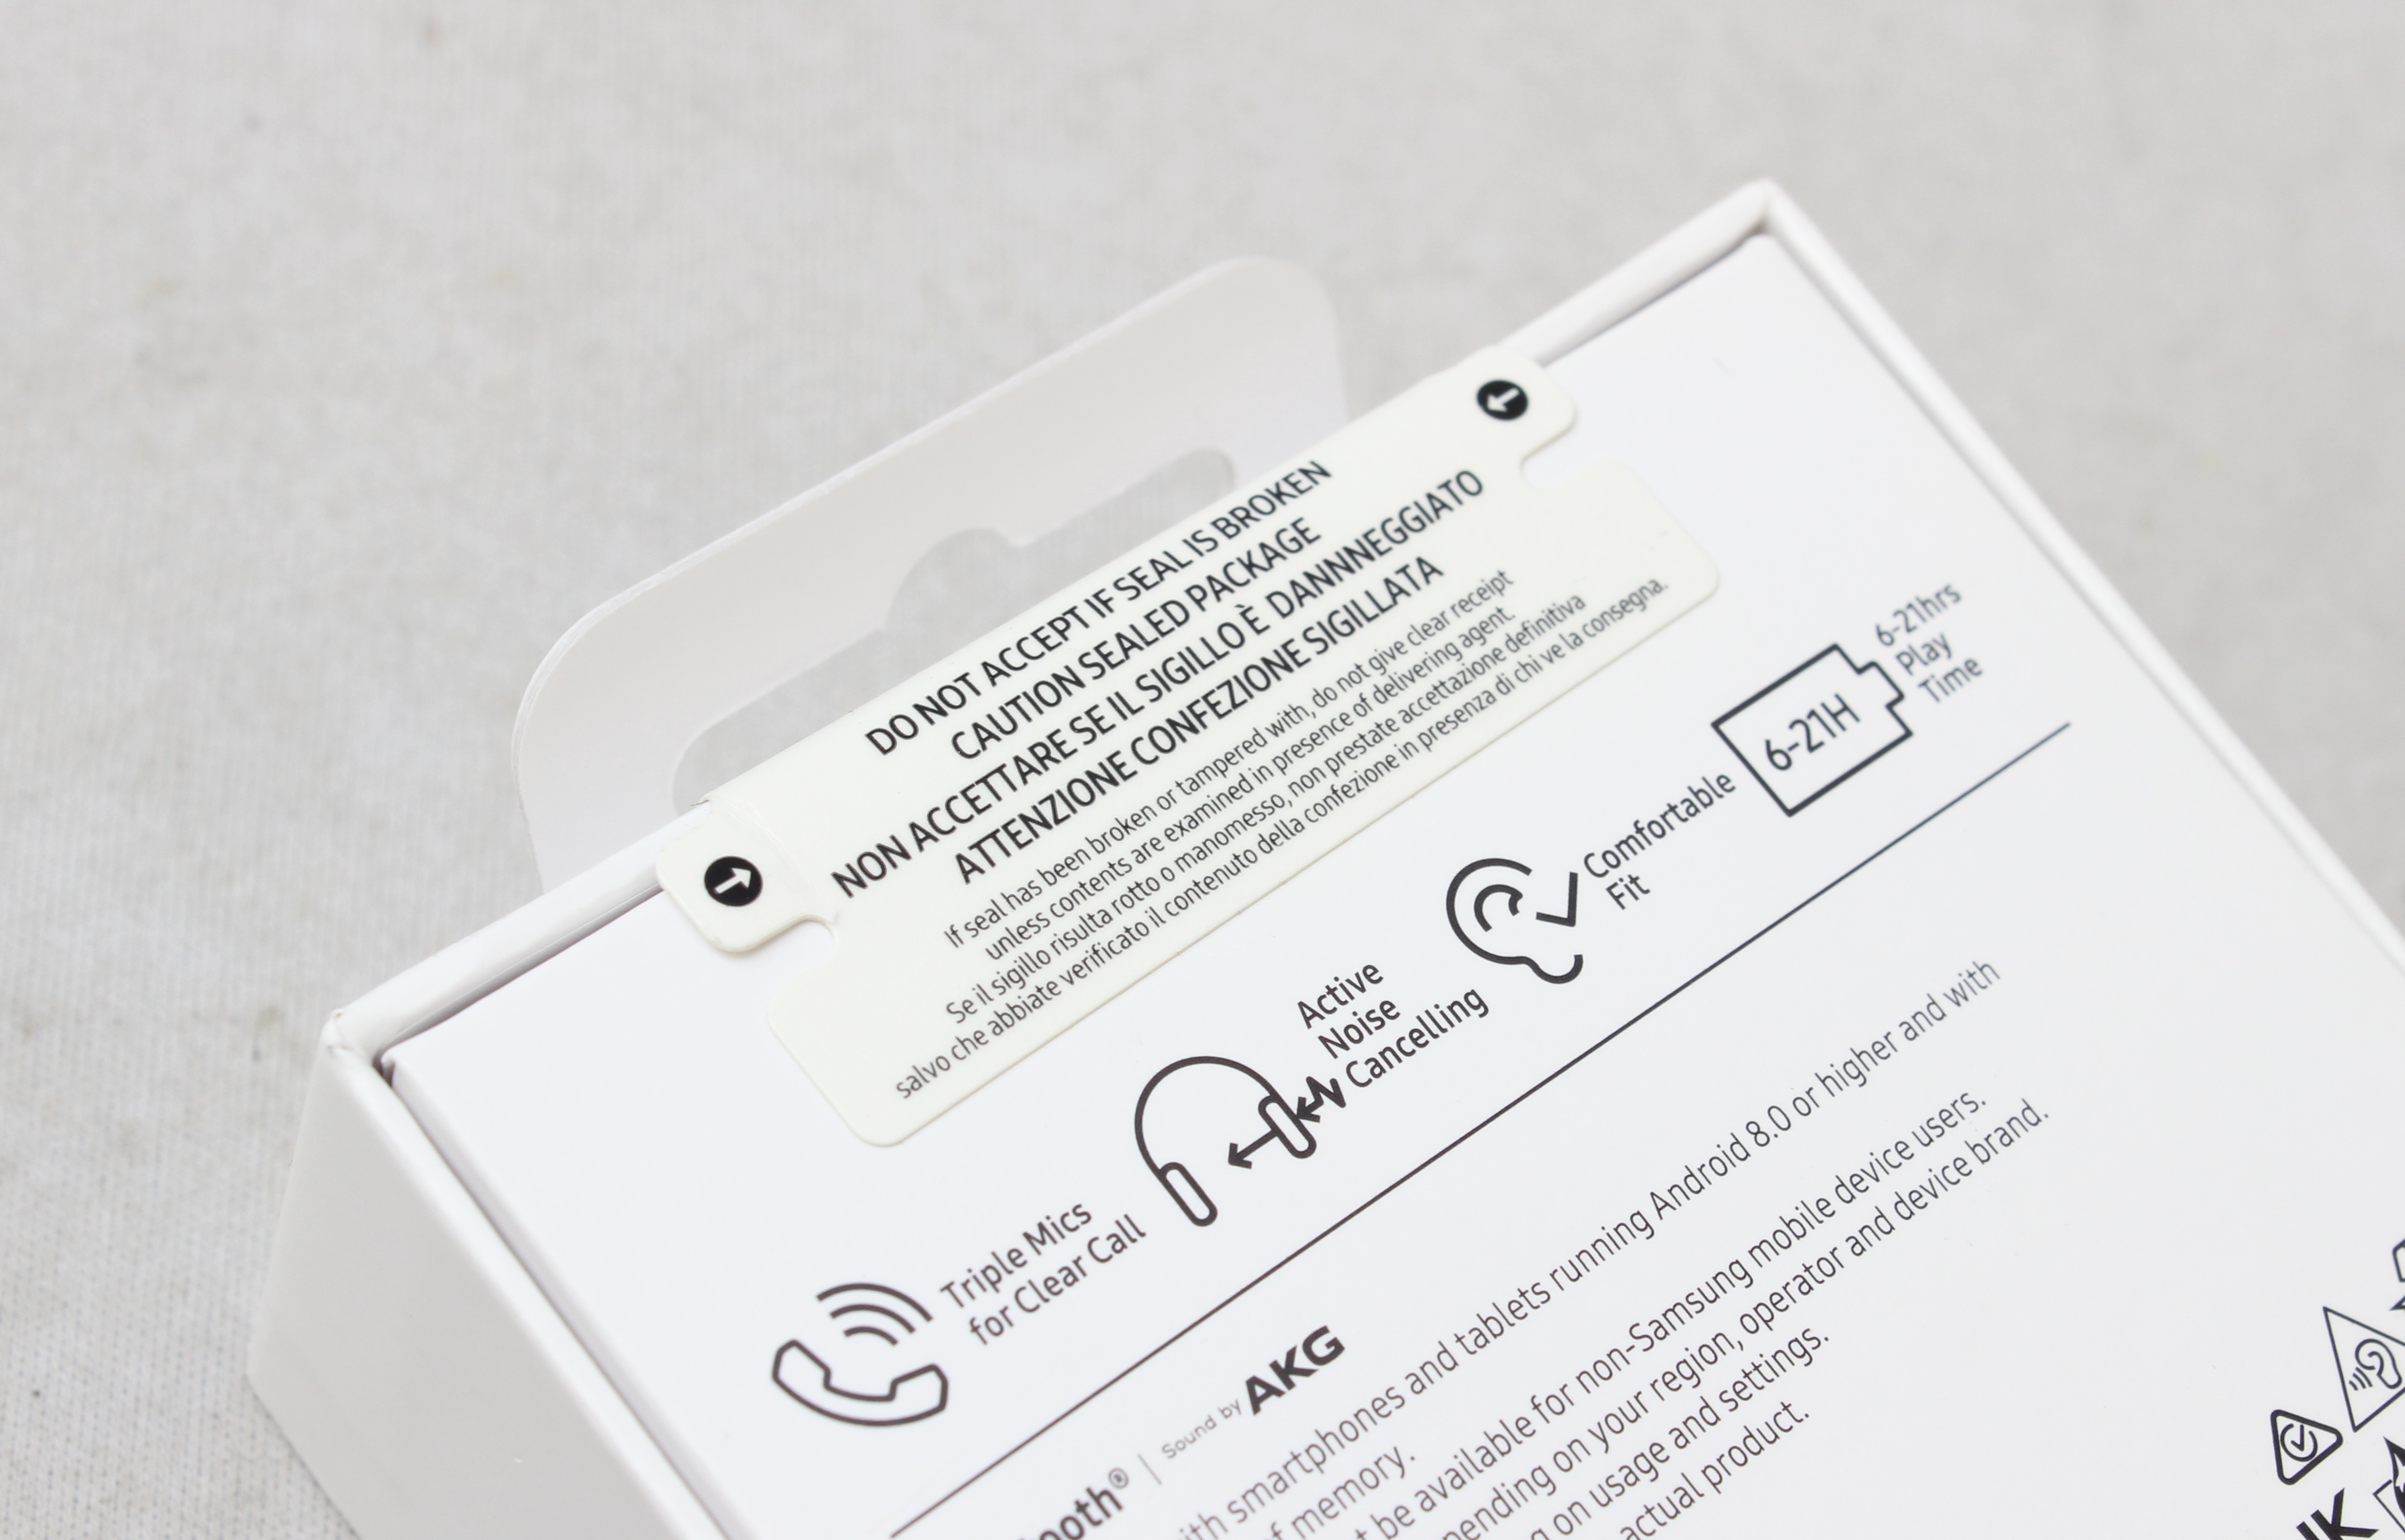 DO NOT ACCEPT IF SEAL IS BROKEN
CAUTION SEALED PACKAGE
NON ACCETTARE SE IL SIGILLO È DANNNEGGIATO
ATTENZIONE CONFEZIONE SIGILLATA
If seal has been broken or tampered with, do not give clear receipt
unless contents are examined in presence of delivering agent.
Se il sigillo risulta rotto o manomesso, non prestate accettazione definitiva
salvo che abbiate verificato il contenuto della confezione in presenza di chi ve la consegna.
Triple Mics
for Clear Call
Active
Noise
Cancelling
Comfortable
Fit
6-21H
6-21hrs
Play
Time
Sound by AKG
smartphones and tablets running Android 8.0 or higher and with
of memory.
be available for non-Samsung mobile device users.
on your region, operator and device brand.
on usage and settings.
actual product.